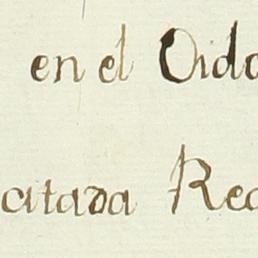 en el Oido
citada Rea